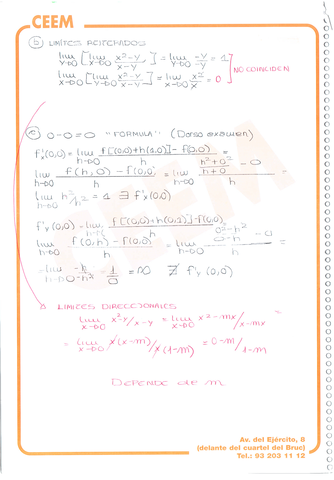 CEEM
b) LIMITES REITERADOS
lim y→0 [lim x→0 x²-y/x-y] = lim y→0 -y/-y = 1
lim x→0 [lim y→0 x²-y/x-y] = lim x→0 x²/x = 0
NO COINCIDEN
c) 0-0=0 "FORMULA" (Dorso examen)
f'x(0,0) = lim h→0 f[(0,0)+h(1,0)] - f(0,0) / h =
lim h→0 f(h,0) - f(0,0) / h = lim h→0 h²+0²/h+0 - 0 / h =
lim h→0 h²/h² = 1 ∃ f'x(0,0)
f'y(0,0) = lim h→0 f[(0,0)+h(0,1)] - f(0,0) / h =
lim h→0 f(0,h) - f(0,0) / h = lim h→0 0²-h²/0-h - 0 / h =
= lim h→0 -h/0-h² = 1/0 = ∞ ∄ f'y(0,0)
LIMITES DIRECCIONALES
lim x→0 x²-y/x-y = lim x→0 x²-mx/x-mx =
= lim x→0 x(x-m)/x(1-m) = 0-m/1-m
DEPENDE de m
Av. del Ejército, 8
(delante del cuartel del Bruc)
Tel.: 93 203 11 12